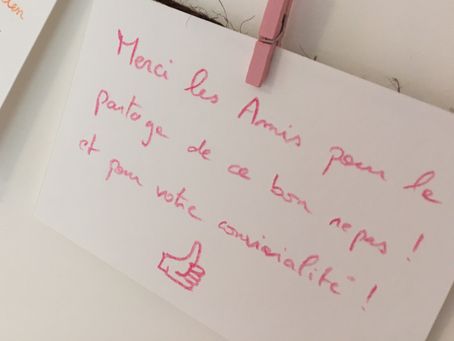 Merci les Amis pour le
partage de ce bon repas !
et pour votre convivialité !